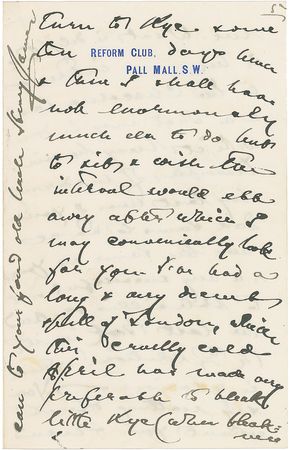 turn to Rye some
ten days hence
REFORM CLUB,
PALL MALL. S.W.
& then I shall have
not enormously
much else to do but
to sit & wish the
interval would ebb
away after which I
may conveniently look
for you. I've had a
long & very decent
spell of London, which
this cruelly cold
April has made any
preferable to bleak
little Rye (when bleak-
ness
can to your fond old Uncle Henry James